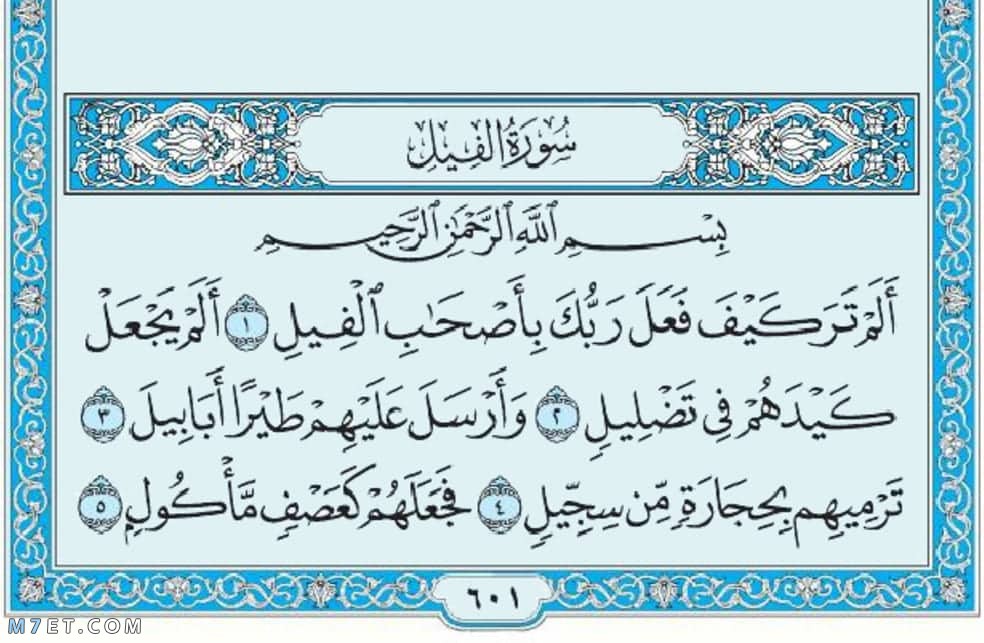 سُورَةُ الفِيلِ
بِسْمِ ٱللَّهِ ٱلرَّحْمَٰنِ ٱلرَّحِيمِ
أَلَمْ تَرَ كَيْفَ فَعَلَ رَبُّكَ بِأَصْحَٰبِ ٱلْفِيلِ ١ أَلَمْ يَجْعَلْ
كَيْدَهُمْ فِى تَضْلِيلٍ ٢ وَأَرْسَلَ عَلَيْهِمْ طَيْرًا أَبَابِيلَ ٣
تَرْمِيهِم بِحِجَارَةٍ مِّن سِجِّيلٍ ٤ فَجَعَلَهُمْ كَعَصْفٍ مَّأْكُولٍۭ ٥
٦٠١
M7ET.COM